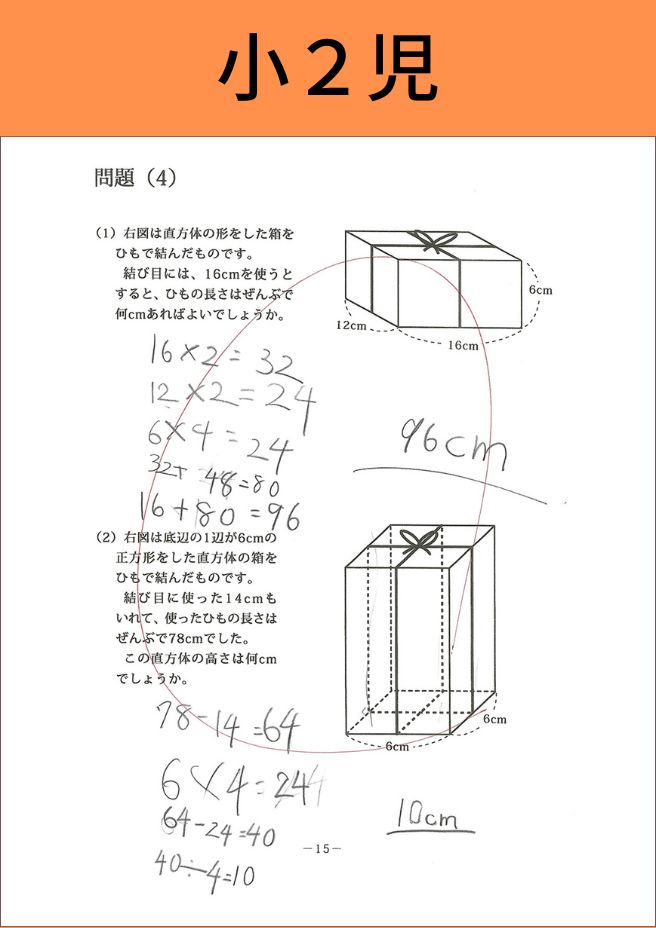 小２児
問題（4）
（1）右図は直方体の形をした箱を
ひもで結んだものです。
結び目には、16cmを使うと
すると、ひもの長さはぜんぶで
何cmあればよいでしょうか。
6cm
12cm
16cm
16×2=32
12×2=24
6×4=24
32+48=80
16+80=96
96cm
（2）右図は底辺の1辺が6cmの
正方形をした直方体の箱を
ひもで結んだものです。
結び目に使った14cmも
いれて、使ったひもの長さは
ぜんぶで78cmでした。
この直方体の高さは何cm
でしょうか。
6cm
6cm
78-14=64
6×4=24
64-24=40
40÷4=10
10cm
－15－